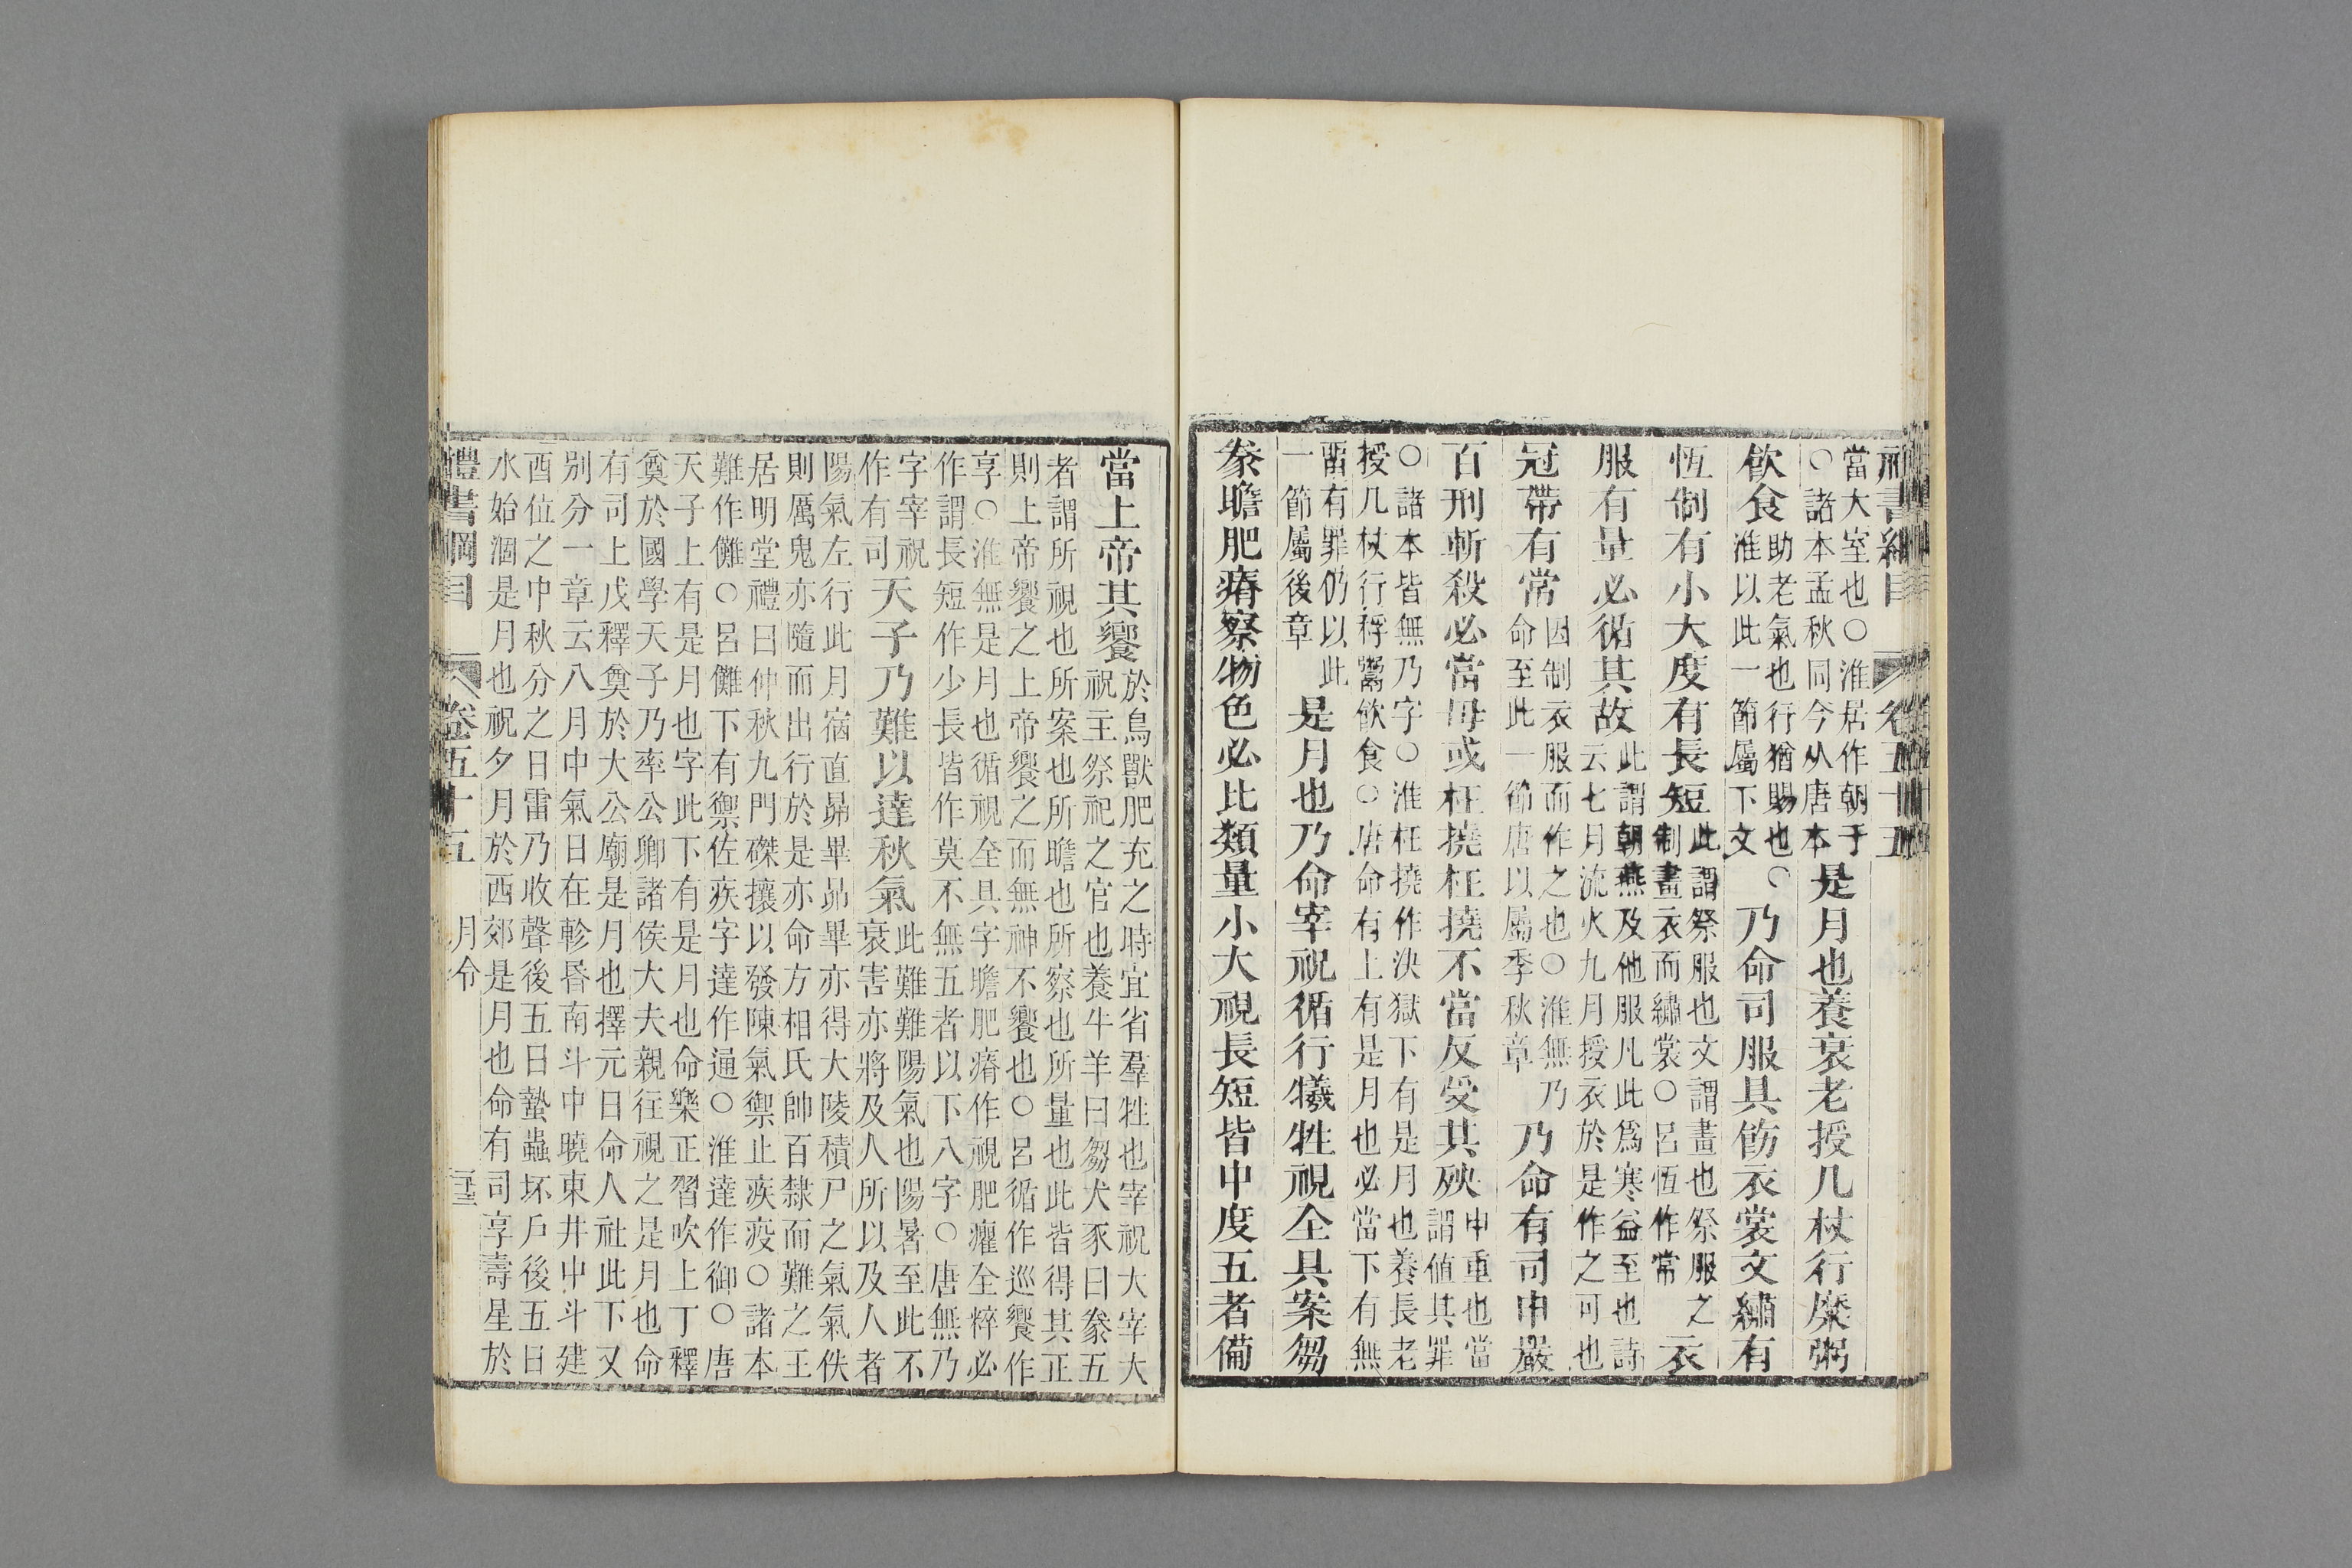 禮書綱目 卷五十五
當大室也○淮居作朝于
○諸本孟秋同今从唐本
是月也養衰老授几杖行糜粥
飲食
助老氣也行猶賜也○
淮以此一節屬下文
乃命司服具飭衣裳文繡有
恆制有小大度有長短
此謂祭服也文謂畫也祭服之
制畫衣而繡裳○呂恆作常
衣
服有量必循其故
此謂朝燕及他服凡此爲寒益至也詩
云七月流火九月授衣於是作之可也
冠帶有常
因制衣服而作之也○淮無乃
命至此一節唐以屬季秋章
乃命有司申嚴
百刑斬殺必當毋或枉撓枉撓不當反受其殃
申重也當
謂值其罪
○諸本皆無乃字○淮枉撓作決獄下有是月也養長老
授几杖行稃鬻飲食○唐命有上有是月也必當下有無
畱有罪仍以此
一節屬後章
是月也乃命宰祝循行犧牲視全具案芻
豢瞻肥瘠察物色必比類量小大視長短皆中度五者備
當上帝其饗
於鳥獸肥充之時宜省羣牲也宰祝大宰大
祝主祭祀之官也養牛羊曰芻犬豕曰豢五
者謂所視也所案也所瞻也所察也所量也此皆得其正
則上帝饗之上帝饗之而無神不饗也○呂循作巡饗作
享○淮無是月也循視全具字瞻肥瘠作視肥癯全粹必
作謂長短作少長皆作莫不無五者以下八字○唐無乃
字宰祝
作有司
天子乃難以達秋氣
此難難陽氣也陽暑至此不
衰害亦將及人所以及人者
陽氣左行此月宿直昴畢昴畢亦得大陵積尸之氣氣佚
則厲鬼亦隨而出行於是亦命方相氏帥百隸而難之王
居明堂禮曰仲秋九門磔攘以發陳氣禦止疾疫○諸本
難作儺○呂儺下有禦佐疾字達作通○淮達作御○唐
天子上有是月也字此下有是月也命樂正習吹上丁釋
奠於國學天子乃率公卿諸侯大夫親往視之是月也命
有司上戊釋奠於大公廟是月也擇元日命人社此下又
別分一章云八月中氣日在軫昏南斗中曉東井中斗建
酉位之中秋分之日雷乃收聲後五日蟄蟲坏戶後五日
水始涸是月也祝夕月於西郊是月也命有司享壽星於
禮書綱目 卷五十五 月令